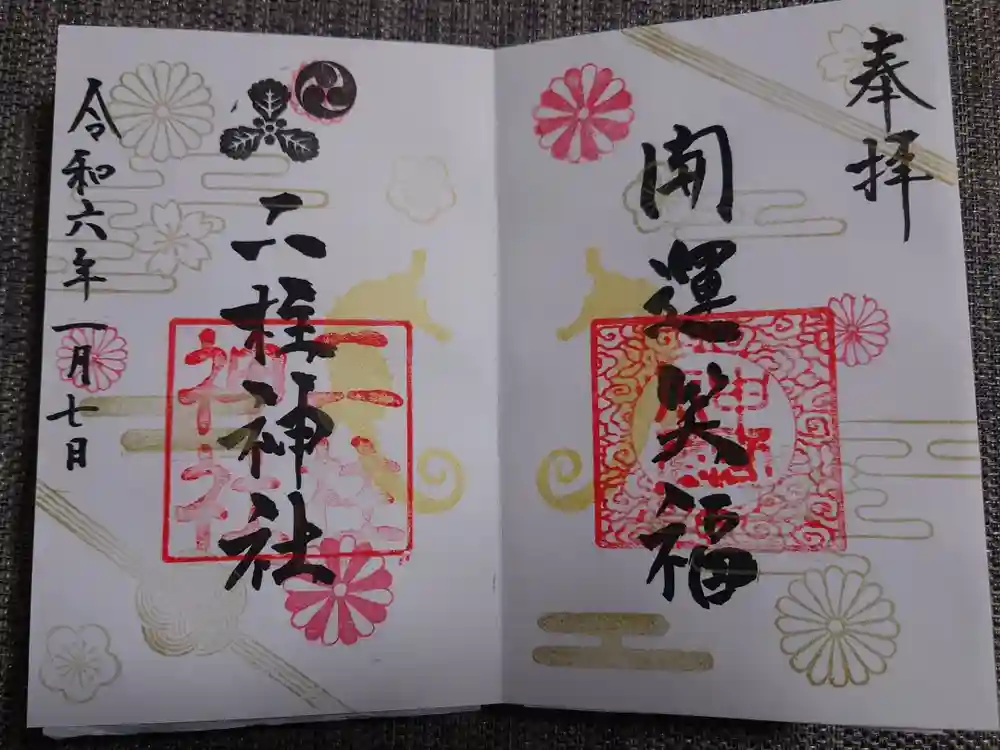 奉拝
開運笑福
六柱神社
令和六年一月七日
六柱
神社